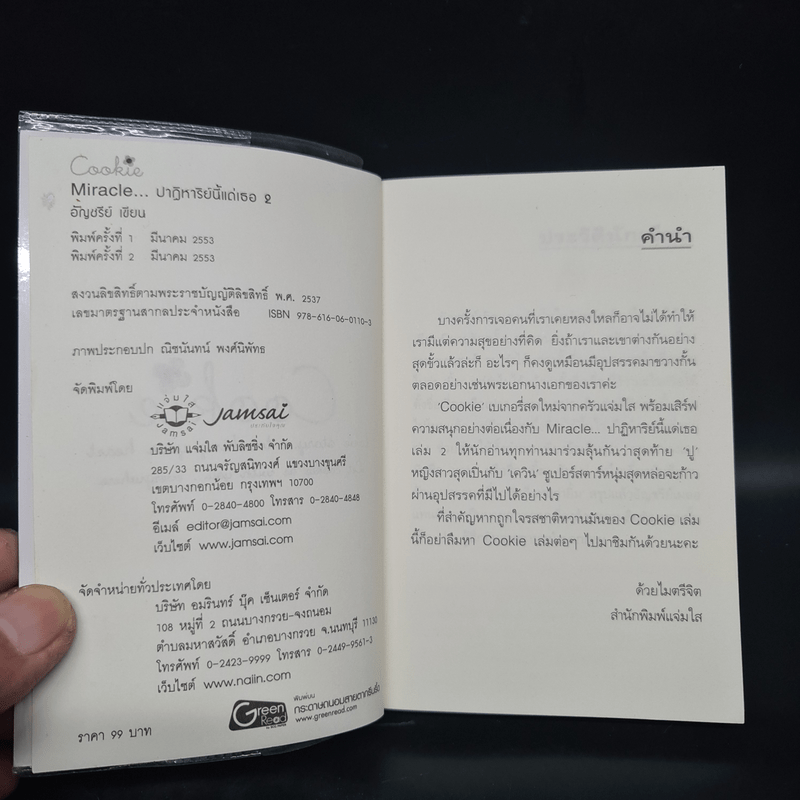 Cookie
Miracle... ปาฏิหาริย์นี้แด่เธอ 2
อัญชรีย์ เขียน
พิมพ์ครั้งที่ 1 มีนาคม 2553
พิมพ์ครั้งที่ 2 มีนาคม 2553
สงวนลิขสิทธิ์ตามพระราชบัญญัติลิขสิทธิ์ พ.ศ. 2537
เลขมาตรฐานสากลประจำหนังสือ ISBN 978-616-06-0110-3
ภาพประกอบปก ณิชนันทน์ พงศ์นิพัทธ
จัดพิมพ์โดย
แจ่มใส
Jamsai
Jamsai
บริษัท แจ่มใส พับลิชชิ่ง จำกัด
285/33 ถนนจรัญสนิทวงศ์ แขวงบางขุนศรี
เขตบางกอกน้อย กรุงเทพฯ 10700
โทรศัพท์ 0-2840-4800 โทรสาร 0-2840-4848
อีเมล์ editor@jamsai.com
เว็บไซต์ www.jamsai.com
จัดจำหน่ายทั่วประเทศโดย
บริษัท อมรินทร์ บุ๊ค เซ็นเตอร์ จำกัด
108 หมู่ที่ 2 ถนนบางกรวย-จงถนอม
ตำบลมหาสวัสดิ์ อำเภอบางกรวย จ.นนทบุรี 11130
โทรศัพท์ 0-2423-9999 โทรสาร 0-2449-9561-3
เว็บไซต์ www.naiin.com
Green Read
พิมพ์บน
กระดาษถนอมสายตากรีนรี้ด
www.greenread.com
ราคา 99 บาท
คำนำ
บางครั้งการเจอคนที่เราเคยหลงใหลก็อาจไม่ได้ทำให้
เรามีแต่ความสุขอย่างที่คิด ยิ่งถ้าเราและเขาต่างกันอย่าง
สุดขั้วแล้วล่ะก็ อะไรๆ ก็คงดูเหมือนมีอุปสรรคมาขวางกั้น
ตลอดอย่างเช่นพระเอกนางเอกของเราค่ะ
'Cookie' เบเกอรี่สดใหม่จากครัวแจ่มใส พร้อมเสิร์ฟ
ความสนุกอย่างต่อเนื่องกับ Miracle... ปาฏิหาริย์นี้แด่เธอ
เล่ม 2 ให้นักอ่านทุกท่านมาร่วมลุ้นกันว่าสุดท้าย 'ปู'
หญิงสาวสุดเป็นกับ 'เควิน' ซูเปอร์สตาร์หนุ่มสุดหล่อจะก้าว
ผ่านอุปสรรคที่มีไปได้อย่างไร
ที่สำคัญหากถูกใจรสชาติหวานมันของ Cookie เล่ม
นี้ก็อย่าลืมหา Cookie เล่มต่อๆ ไปมาชิมกันด้วยนะคะ
ด้วยไมตรีจิต
สำนักพิมพ์แจ่มใส